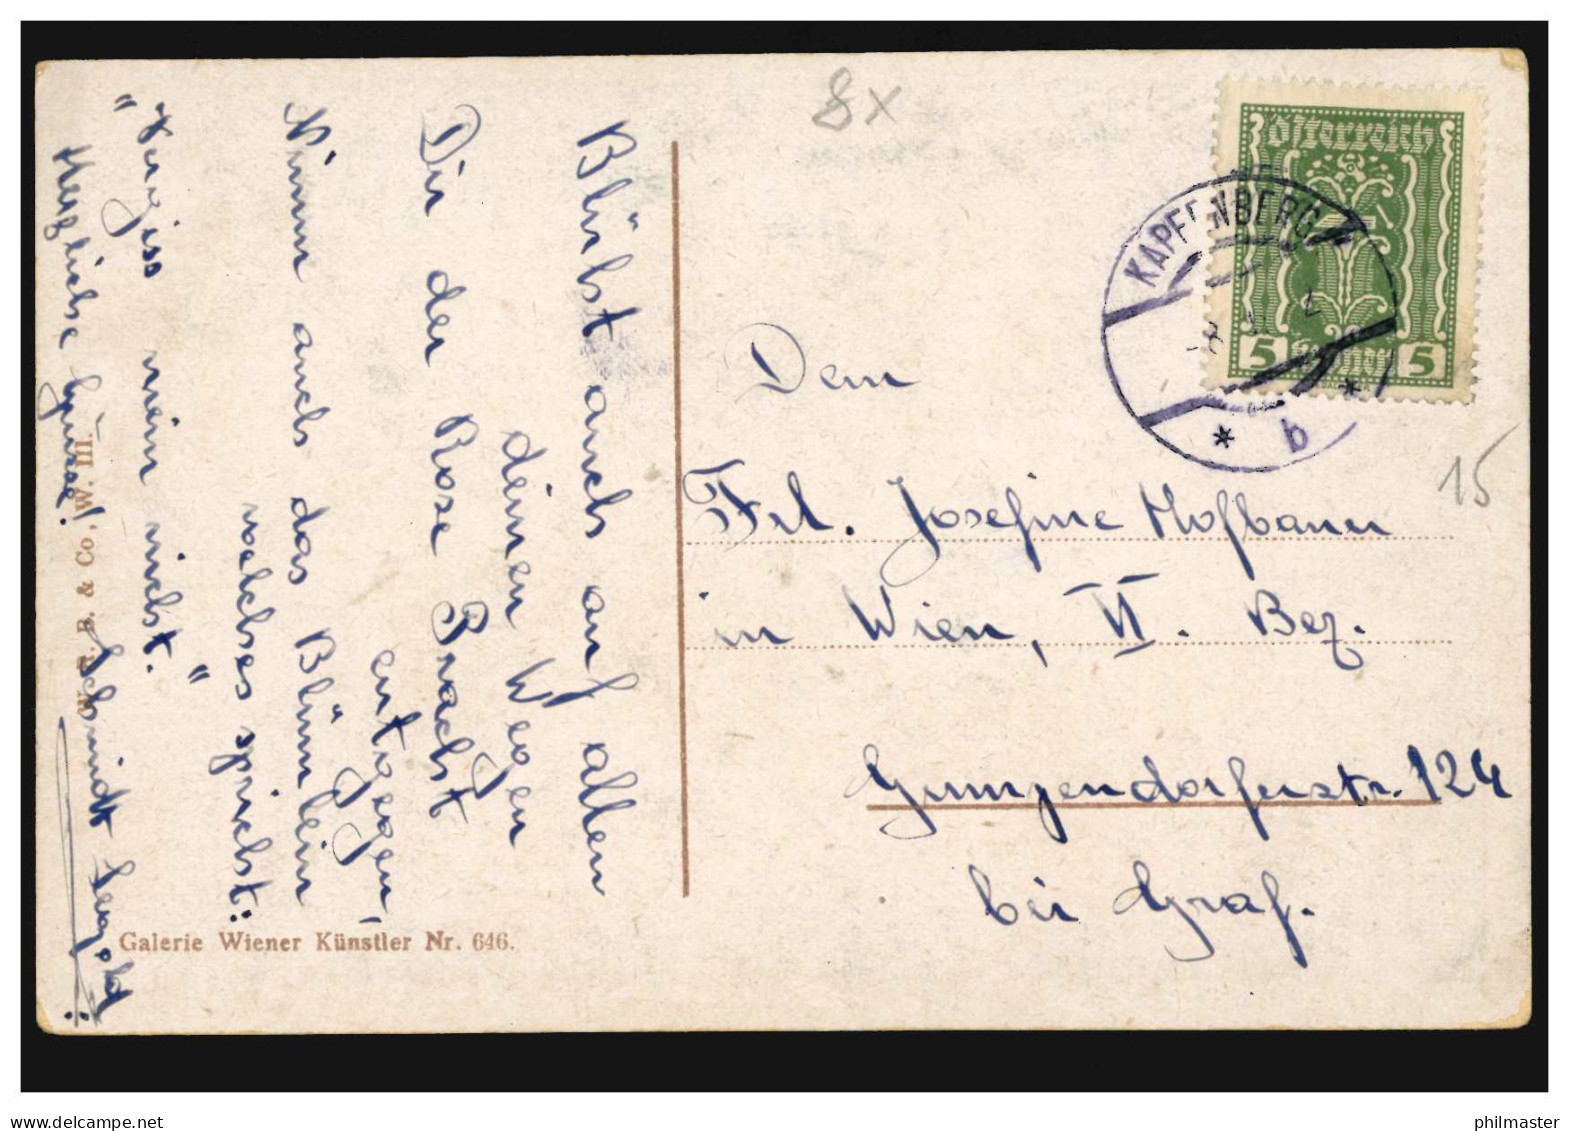 Blüht auch auf allen
deinen Wegen
Dir der Rose Pracht
entgegen,
Nimm auch das Blümlein
welches spricht:
"Vergiss mein nicht."
Herzliche Grüsse!
Schmidt
W. R. B. & Co, W. III.
Galerie Wiener Künstler Nr. 646.
8x
Österreich
5 5
KAPFENBERG
* b *
15
Dem
Frl. Josefine Hofbauer
in Wien, VI. Bez.
Gumpendorferstr. 124
bei Graf.
delcampe.net
philmaster